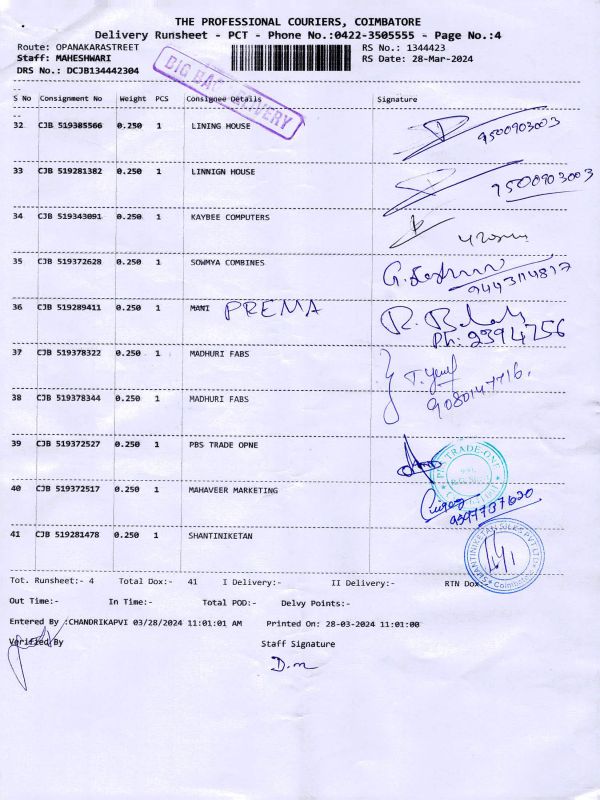 THE PROFESSIONAL COURIERS, COIMBATORE
Delivery Runsheet - PCT - Phone No.:0422-3505555 - Page No.:4
Route: OPANAKARASTREET RS No.: 1344423
Staff: MAHESHWARI RS Date: 28-Mar-2024
DRS No.: DCJB134442304
BIG BAG DELIVERY
S No Consignment No Weight PCS Consignee Details Signature
32 CJB 519385566 0.250 1 LINING HOUSE 9500903003
33 CJB 519281382 0.250 1 LINNIGN HOUSE 9500903003
34 CJB 519343091 0.250 1 KAYBEE COMPUTERS
35 CJB 519372628 0.250 1 SOWMYA COMBINES
36 CJB 519289411 0.250 1 MANI PREMA
Ph: 2394256
37 CJB 519378322 0.250 1 MADHURI FABS
38 CJB 519378344 0.250 1 MADHURI FABS
39 CJB 519372527 0.250 1 PBS TRADE OPNE
40 CJB 519372517 0.250 1 MAHAVEER MARKETING
41 CJB 519281478 0.250 1 SHANTINIKETAN
Tot. Runsheet:- 4 Total Dox:- 41 I Delivery:- II Delivery:- RTN Dox:-
Out Time:- In Time:- Total POD:- Delvy Points:-
Entered By :CHANDRIKAPVI 03/28/2024 11:01:01 AM Printed On: 28-03-2024 11:01:00
Verified By Staff Signature
D.m